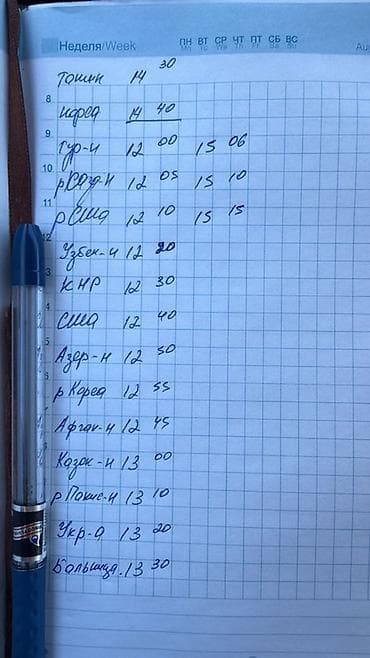 Неделя/Week ПН ВТ СР ЧТ ПТ СБ ВС
Mo Tu We Th Fr Sa Su
Тошкн 14 30
8
Корея 14 40
9
Тур-н 12 00 15 06
10
р Каза-н 12 05 15 10
11
р США 12 10 15 15
12
Узбек-н 12 20
КНР 12 30
США 12 40
Азер-н 12 50
р Корея 12 55
Афган-н 12 45
Казак-н 13 00
р Покис-н 13 10
Укр-а 13 20
Больница. 13 30